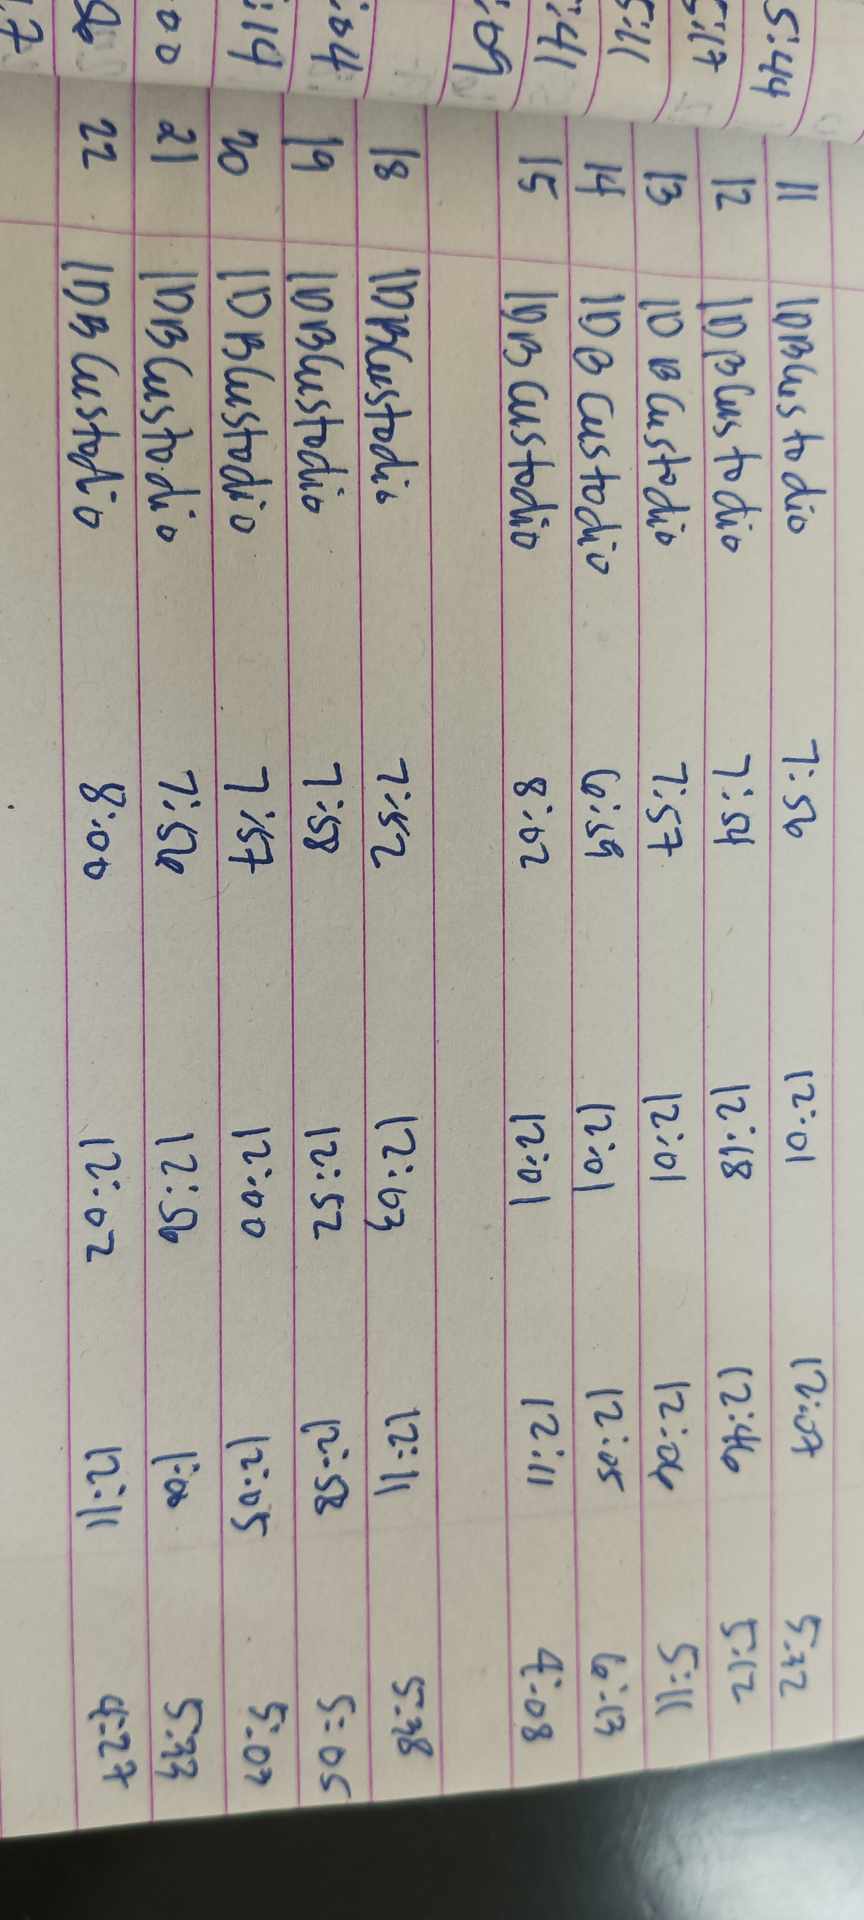 5:44
5:17
5:11
:41
:09
:04
:14
00
11 IDBCustodio 7:56 12:01 12:07 5:32
12 IDBCustodio 7:54 12:18 12:46 5:12
13 IDBCustodio 7:57 12:01 12:06 5:11
14 IDBCustodio 6:59 12:01 12:05 6:13
15 IDBCustodio 8:02 12:01 12:11 4:08
18 IDBCustodio 7:52 12:03 12:11 5:38
19 IDBCustodio 7:58 12:52 12:58 5:05
20 IDBCustodio 7:57 12:00 12:05 5:03
21 IDBCustodio 7:56 12:56 1:00 5:33
22 IDBCustodio 8:00 12:02 12:11 4:27